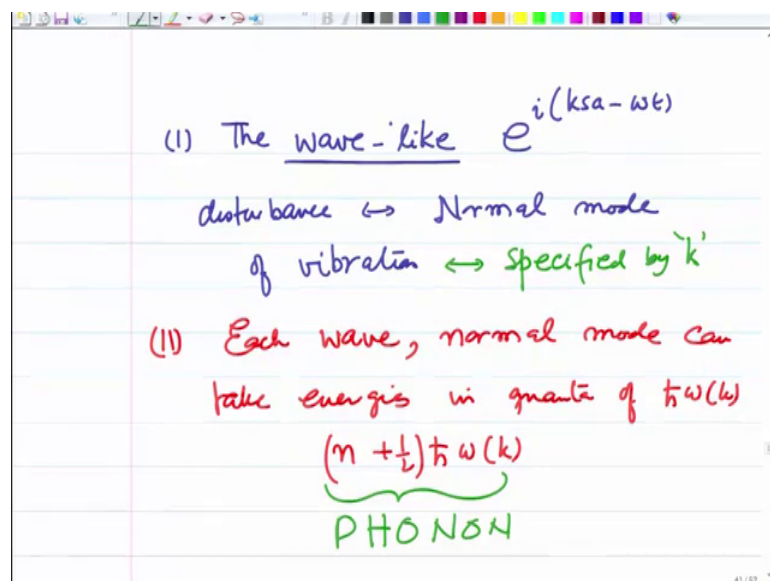 (I) The wave-like e^{i(ksa - ωt)}
disturbance ↔ Normal mode
of vibration ↔ specified by 'k'
(II) Each wave, normal mode can
take energies in quanta of ℏω(k)
(n + 1/2) ℏ ω(k)
PHONON